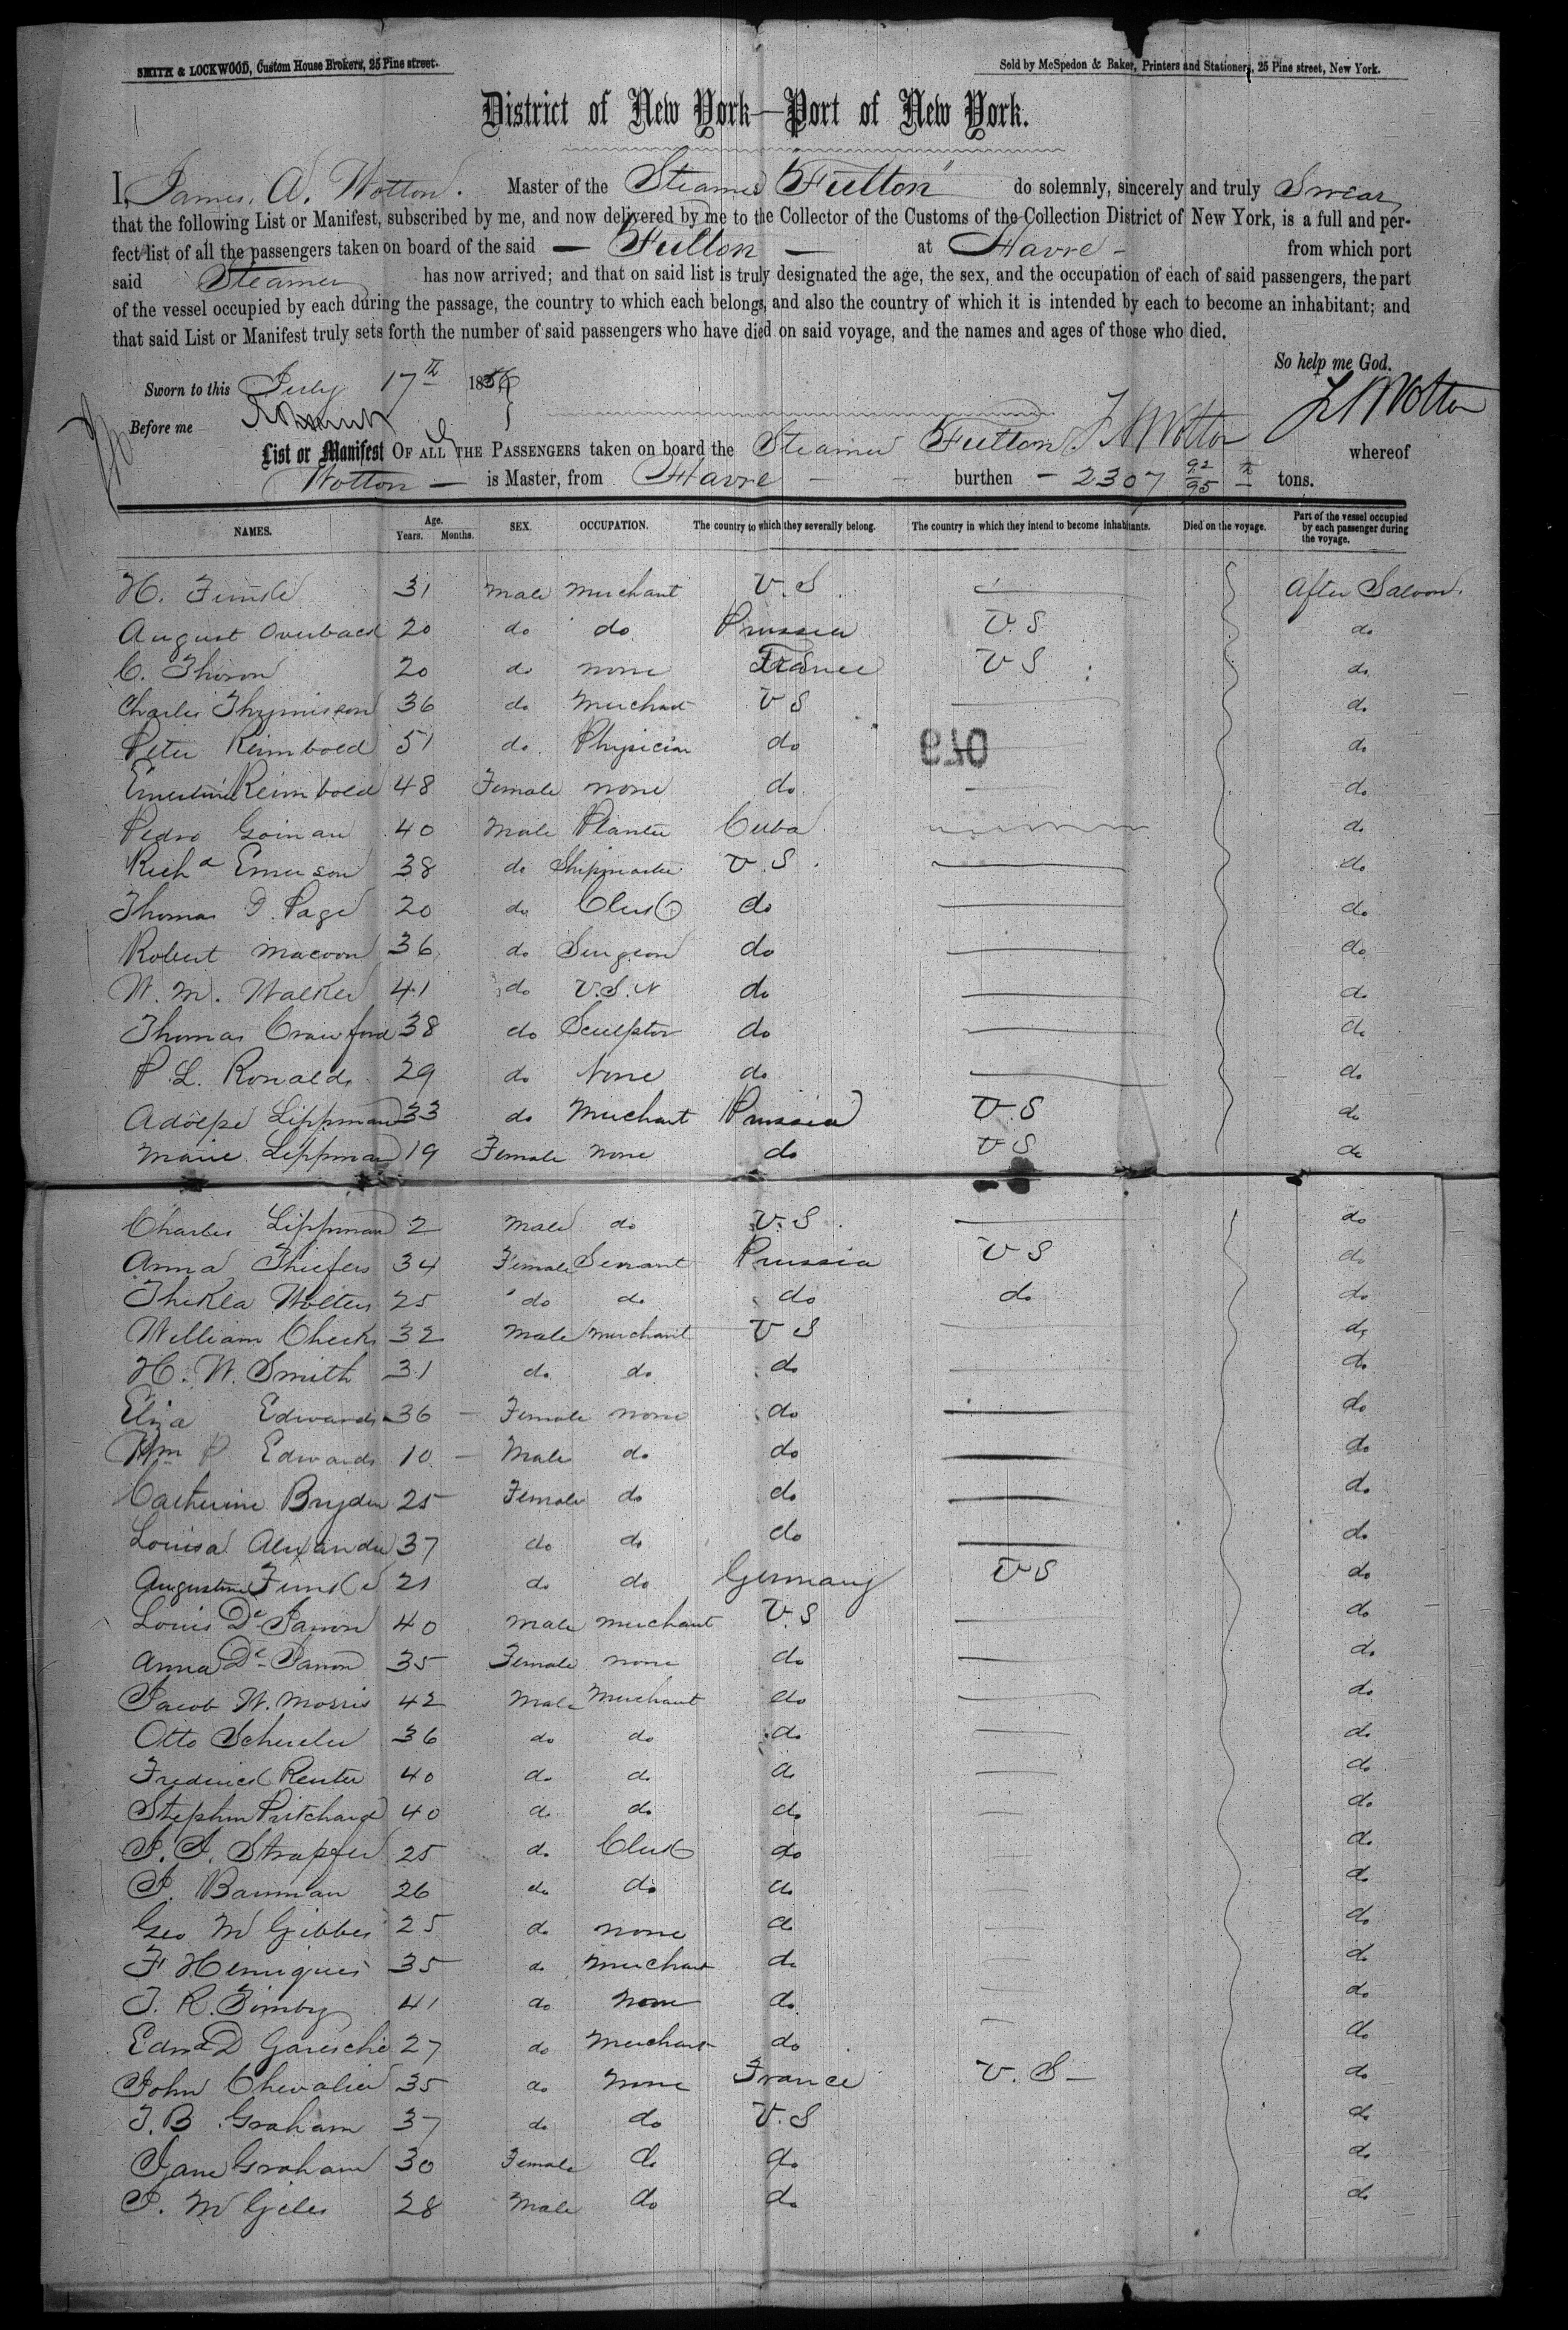 SMITH & LOCKWOOD, Custom House Brokers, 25 Pine street.
Sold by McSpedon & Baker, Printers and Stationers, 25 Pine street, New York.
District of New York—Port of New York.
I, James, A. Wotton. Master of the Steamer "Fulton" do solemnly, sincerely and truly Swear
that the following List or Manifest, subscribed by me, and now delivered by me to the Collector of the Customs of the Collection District of New York, is a full and per-
fect list of all the passengers taken on board of the said — Fulton — at Havre — from which port
said Steamer has now arrived; and that on said list is truly designated the age, the sex, and the occupation of each of said passengers, the part
of the vessel occupied by each during the passage, the country to which each belongs, and also the country of which it is intended by each to become an inhabitant; and
that said List or Manifest truly sets forth the number of said passengers who have died on said voyage, and the names and ages of those who died.
So help me God.
Sworn to this July 17th 1856
Before me
J A Wotton
List or Manifest OF ALL THE PASSENGERS taken on board the Steamer Fulton J A Wotton whereof
Wotton — is Master, from Havre — burthen — 2307 92/95 tons.
NAMES. Age. Years. Months. SEX. OCCUPATION. The country to which they severally belong. The country in which they intend to become inhabitants. Died on the voyage. Part of the vessel occupied by each passenger during the voyage.
H. 31 male merchant U.S. After Saloon.
August Overback 20 do do Prussia U.S do
C. Thoron 20 do none France U S do
Charles 36 do Merchant U S do
Peter Reimbold 51 do. Physician do do
079
Ernestine Reimbold 48 Female none do do
Pedro Goinau 40 Male Planter Cuba do
Richd Emerson 38 do Shipmaster U.S. do
Thomas Page 20 do Clerk do do
Robert Macoon 36 do Surgeon do do
W. M. Walker 41 do U.S.N do do
Thomas Crawford 38 do Sculptor do do
P. L. Ronalds 29 do None do do
Adolpe Lippman 33 do Merchant Prussia U.S do
Marie Lippman 19 Female None do U S do
Charles Lippman 2 Male do U.S. do
Anna Thiefers 34 Female Servant Prussia U S do
Thekla Wolters 25 do do do do do
William Cheeks 32 Male Merchant U S do
H. W. Smith 31 do do do do
Eliza Edwards 36 — Female none do do
Wm P. Edwards 10 — Male do do do
Catherine Bryden 25 Female do do do
Louisa Alexander 37 do do do do
Augustine 21 do do Germany U S do
Louis De 40 Male merchant U.S do
Anna De 35 Female none do do
Jacob W. Morris 42 Male Merchant do do
Otto Scheuler 36 do do do do
Frederick Reuter 40 do do do do
Stephen Pritchard 40 do do do do
J. J. Strapfer 25 do Clerk do do
J. Bauman 26 do do do do
Geo M Gibbes 25 do none do do
F Henriques 35 do merchant do do
T. R. Timby 41 do none do do
Edwd D Garesche 27 do Merchant do do
John Chevalier 35 do none France U.S — do
J. B Graham 37 do do U.S do
Jane Graham 30 Female do do do
J. M Giles 28 Male do do do